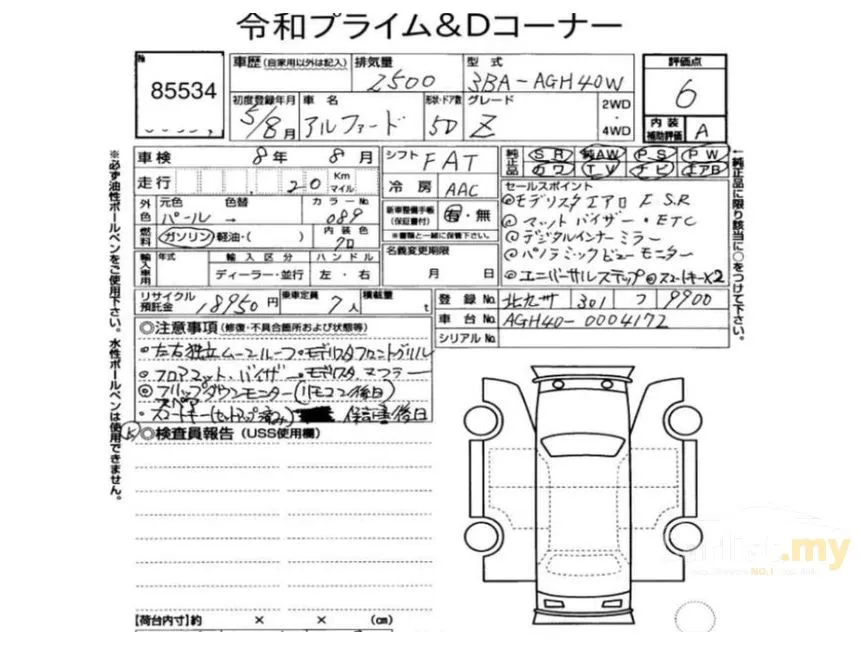 令和プライム&Dコーナー
№ 85534
車歴(自家用以外は記入) 排気量 2500 型式 3BA-AGH40W
評価点 6
初度登録年月 5/8月 車名 アルファード 形状・ドア数 5D グレード Z 2WD・4WD
内装補助評価 A
車検 8年 8月 シフト FAT
純正品 SR 純AW PS PW カワ TV ナビ エアB
走行 20 Km マイル 冷房 AAC
外色 元色 パール 色替 → カラーNo. 089
新車整備手帳(保証書付) 有・無
※書類と一緒に保管下さい。
燃料 ガソリン 軽油・( ) 内装色 クロ
輸入車用 年式 輸入区分 ディーラー・並行 ハンドル 左・右
名義変更期限 月 日
リサイクル預託金 18950円 乗車定員 7人 積載量 t
セールスポイント
◎モデリスタエアロ F S.R
◎マットバイザー・ETC
◎デジタルインナーミラー
◎パノラミックビューモニター
◎ユニバーサルステップ ◎スマートキー×2
登録№ 北九州 301 フ 9900
車台№ AGH40-0004172
シリアル№
◎注意事項(修復・不具合箇所および状態等)
◎左右独立ムーンルーフ・モデリスタフロントグリル
◎フロアマット、バイザー・モデリスタ、マフラー
◎フリップダウンモニター(リモコン後日)
・スペアスマートキー(セットアップ済み) 保書後日
◎検査員報告(USS使用欄)
【荷台内寸】約 × × (cm)
※必ず油性ボールペンをご使用下さい。水性ボールペンは使用できません。
←純正品に限り該当に○をつけて下さい。
carlist.my
NO.1